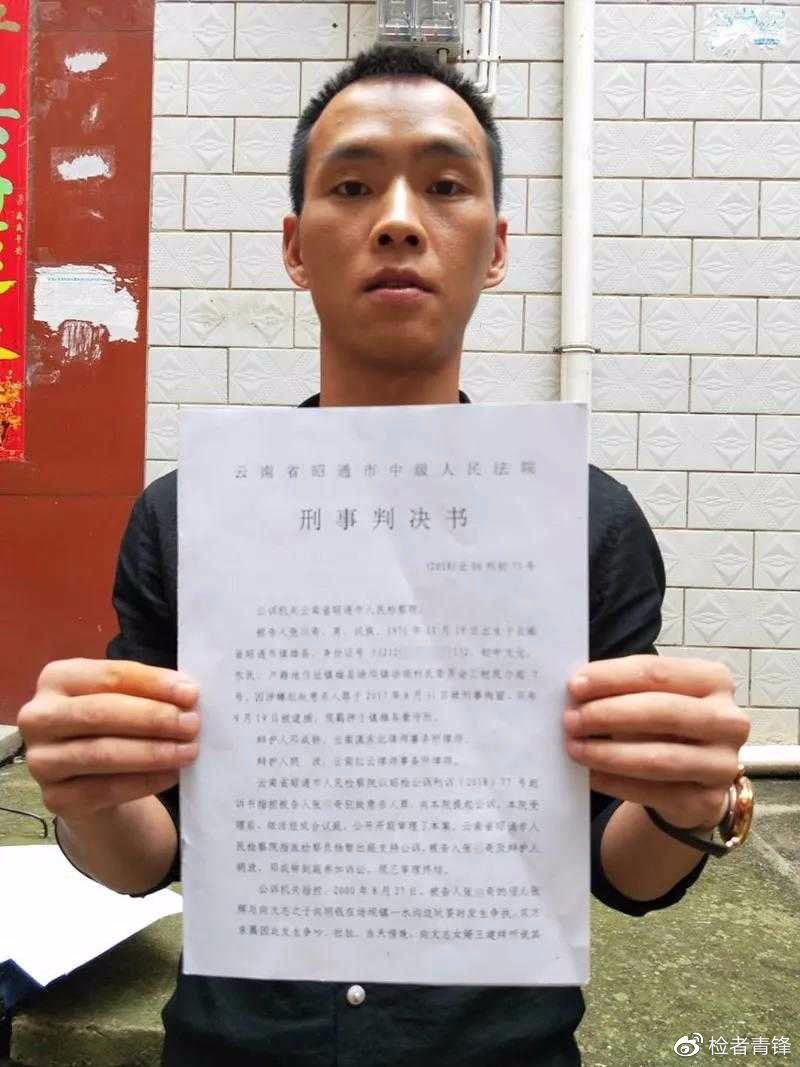 云南省昭通市中级人民法院
刑事判决书
(2018)云06刑初75号
公诉机关云南省昭通市人民检察院。
被告人张 奇,男,汉族,1971年11月19日出生于云南
省昭通市镇雄县,身份证号 初中文化,
农民,户籍地住址镇雄县
号,因涉嫌犯故意杀人罪于2017年8月31日被刑事拘留,同年
9月19日被逮捕,现羁押于镇雄县看守所。
辩护人邓 ,云南滇东北律师事务所律师。
辩护人 波,云南红云律师事务所律师。
云南省昭通市人民检察院以昭检公诉刑诉(2018)77号起
诉书指控被告人张 奇犯故意杀人罪,向本院提起公诉。本院受
理后,依法组成合议庭,公开开庭审理了本案。云南省昭通市人
民检察院指派检察员杨智出庭支持公诉,被告人张 奇及辩护人
到庭参加诉讼,现已审理终结。
公诉机关指控,2000年8月27日,被告人张 奇的侄儿张
辉与向文志之子向明钱在 镇一水沟边玩耍时发生争执,双方
亲属因此发生争吵、拉扯。当天傍晚,向文志女婿王建辉听说其
1
检者青锋